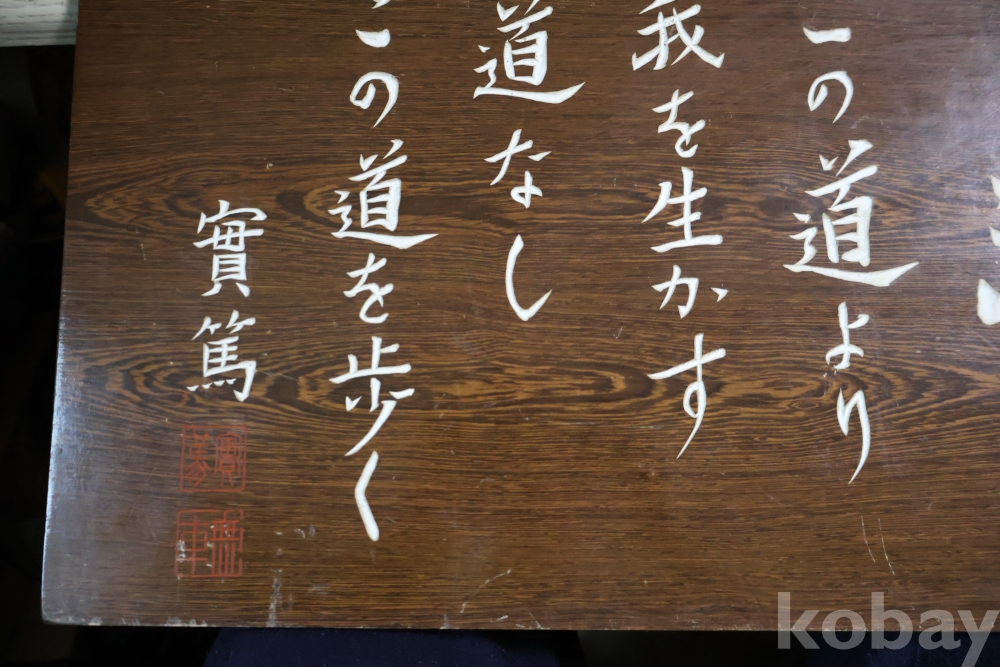 この道より
我を生かす
道なし
この道を歩く
實篤
kobay